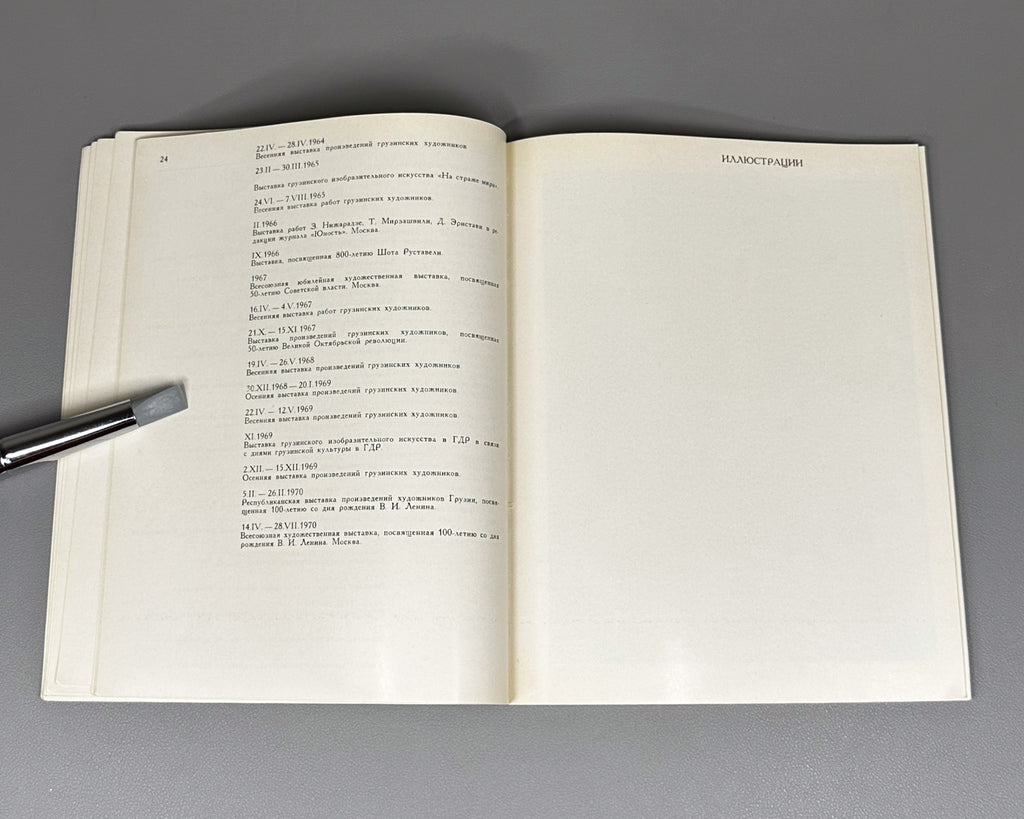 24
22.IV. — 28.IV.1964
Весенняя выставка произведений грузинских художников.
23.II — 30.III.1965
Выставка грузинского изобразительного искусства «На страже мира».
24.VI. — 7.VIII.1965
Весенняя выставка работ грузинских художников.
II.1966
Выставка работ З. Нижарадзе, Т. Мирзашвили, Д. Эристави в ре-
дакции журнала «Юность». Москва.
IX.1966
Выставка, посвященная 800-летию Шота Руставели.
1967
Всесоюзная юбилейная художественная выставка, посвященная
50-летию Советской власти. Москва.
16.IV. — 4.V.1967
Весенняя выставка работ грузинских художников.
21.X. — 15.XI.1967
Выставка произведений грузинских художников, посвященная
50-летию Великой Октябрьской революции.
19.IV. — 26.V.1968
Весенняя выставка произведений грузинских художников.
30.XII.1968 — 20.I.1969
Осенняя выставка произведений грузинских художников.
22.IV — 12.V.1969
Весенняя выставка произведений грузинских художников.
XI.1969
Выставка грузинского изобразительного искусства в ГДР в связи
с днями грузинской культуры в ГДР.
2.XII. — 15.XII.1969
Осенняя выставка произведений грузинских художников.
5.II — 26.II.1970
Республиканская выставка произведений художников Грузии, посвя-
щенная 100-летию со дня рождения В. И. Ленина.
14.IV. — 28.VII.1970
Всесоюзная художественная выставка, посвященная 100-летию со дня
рождения В. И. Ленина. Москва.
ИЛЛЮСТРАЦИИ